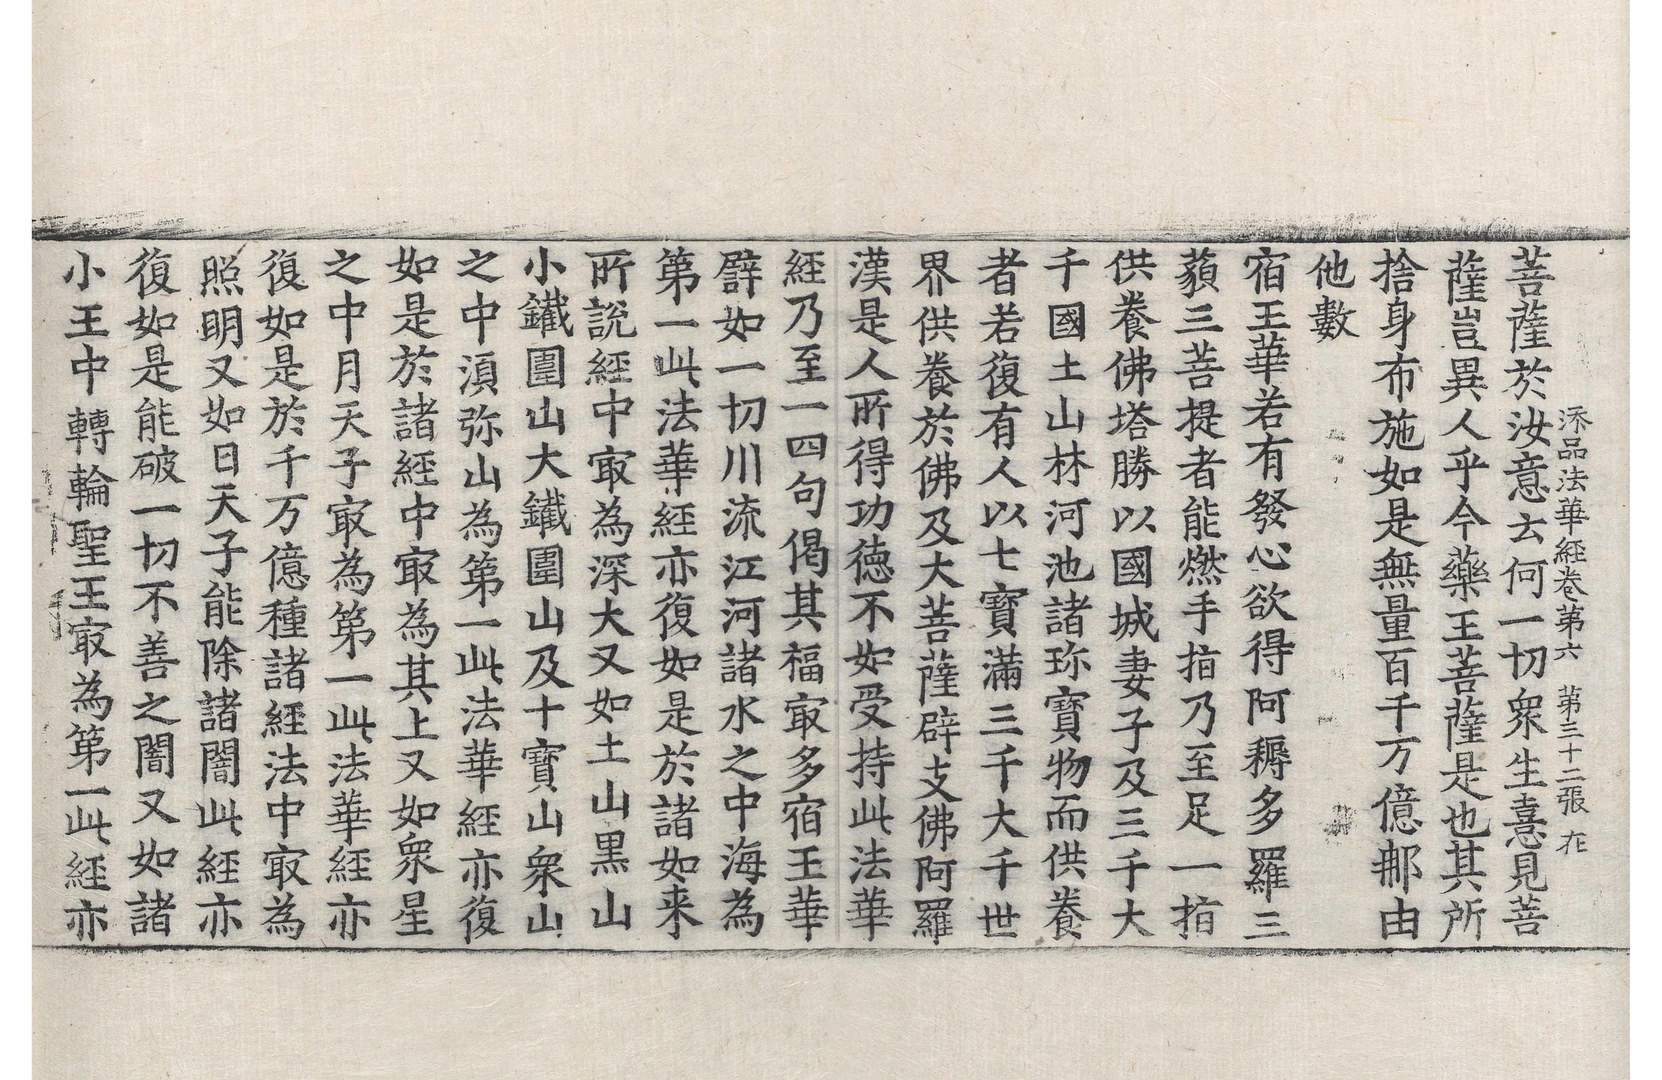 添品法華經卷第六　第三十二張　在
菩薩於汝意云何一切衆生憙見菩
薩豈異人乎今藥王菩薩是也其所
捨身布施如是無量百千万億那由
他數
宿王華若有發心欲得阿耨多羅三
藐三菩提者能燃手指乃至足一指
供養佛塔勝以國城妻子及三千大
千國土山林河池諸珎寶物而供養
者若復有人以七寶滿三千大千世
界供養於佛及大菩薩辟支佛阿羅
漢是人所得功德不如受持此法華
經乃至一四句偈其福冣多宿王華
譬如一切川流江河諸水之中海為
第一此法華經亦復如是於諸如来
所說經中冣為深大又如土山黒山
小鐵圍山大鐵圍山及十寶山衆山
之中湏弥山為第一此法華經亦復
如是於諸經中冣為其上又如衆星
之中月天子冣為第一此法華經亦
復如是於千万億種諸經法中冣為
照明又如日天子能除諸闇此經亦
復如是能破一切不善之闇又如諸
小王中轉輪聖王冣為第一此經亦